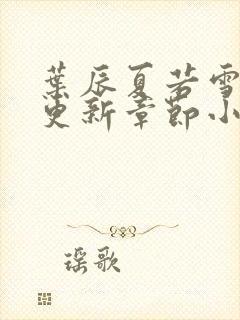 葉辰夏若雪
更新章節小
瑶歌